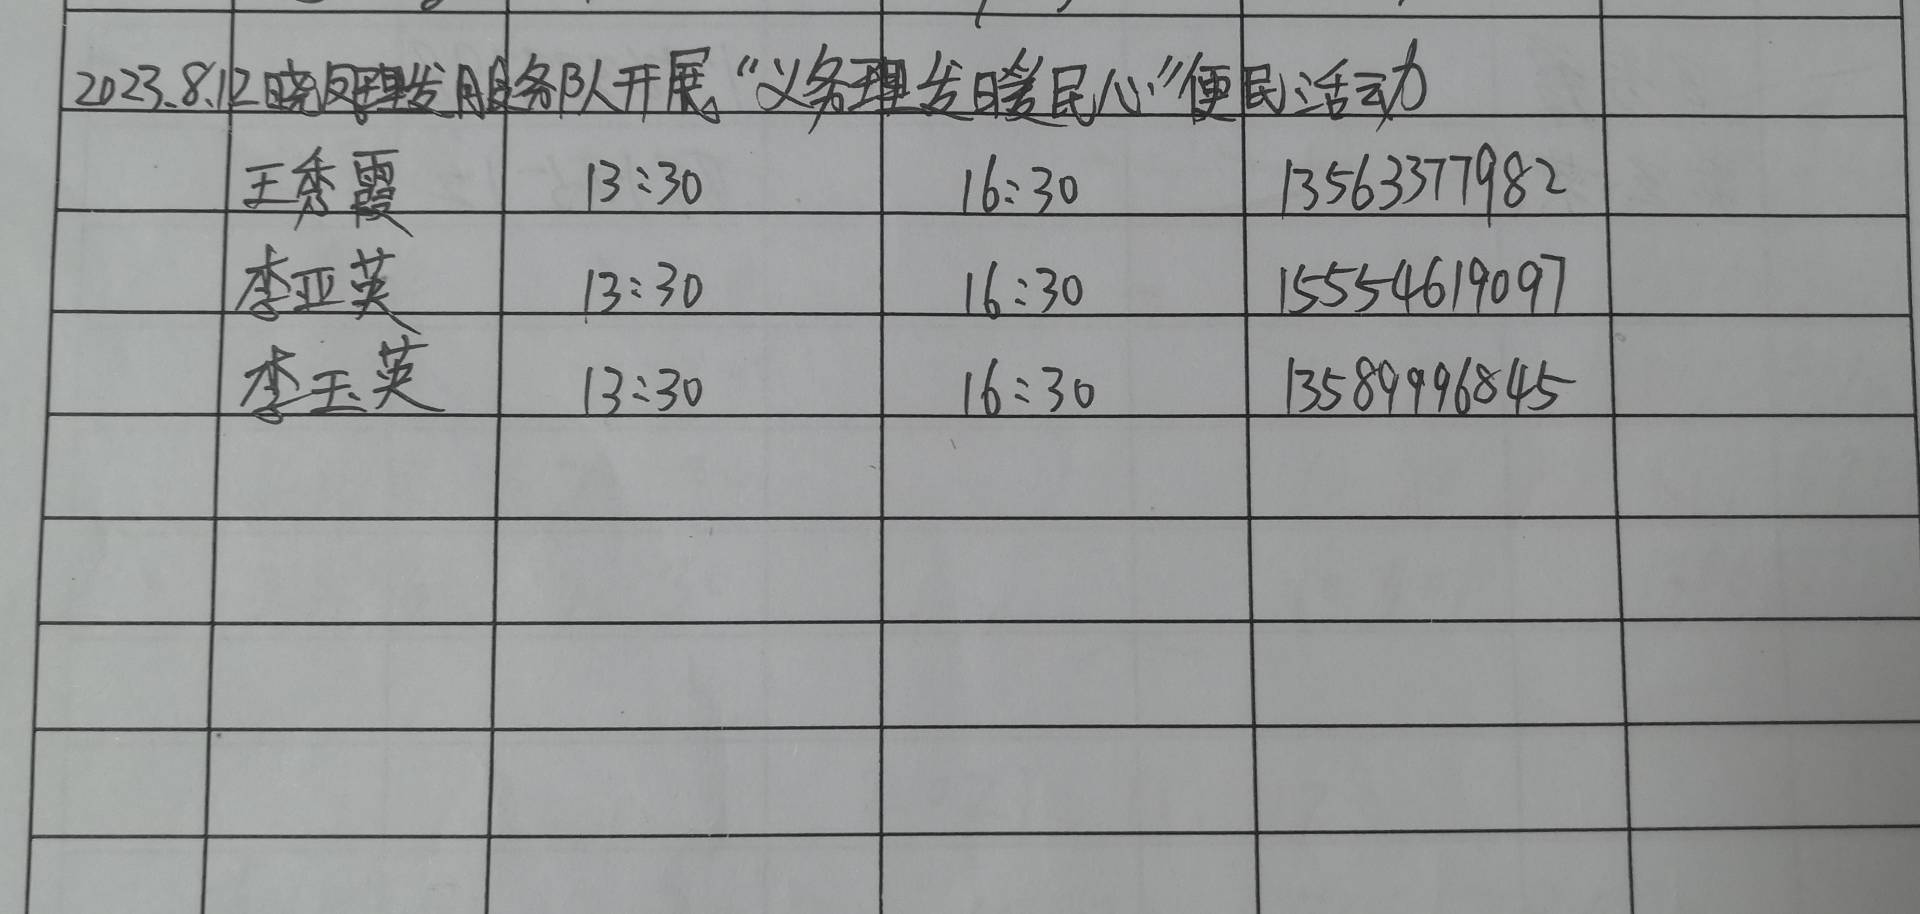 2023.8.12晓凤理发服务队开展“义务理发暖民心”便民活动
王秀霞 13:30 16:30 13563377982
李亚英 13:30 16:30 15554619097
李玉英 13:30 16:30 13589996845